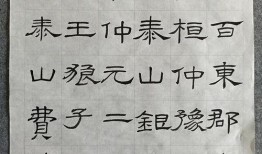 百東郡
桓仲豫
泰山鉏
仲元二
王狼子
泰山費